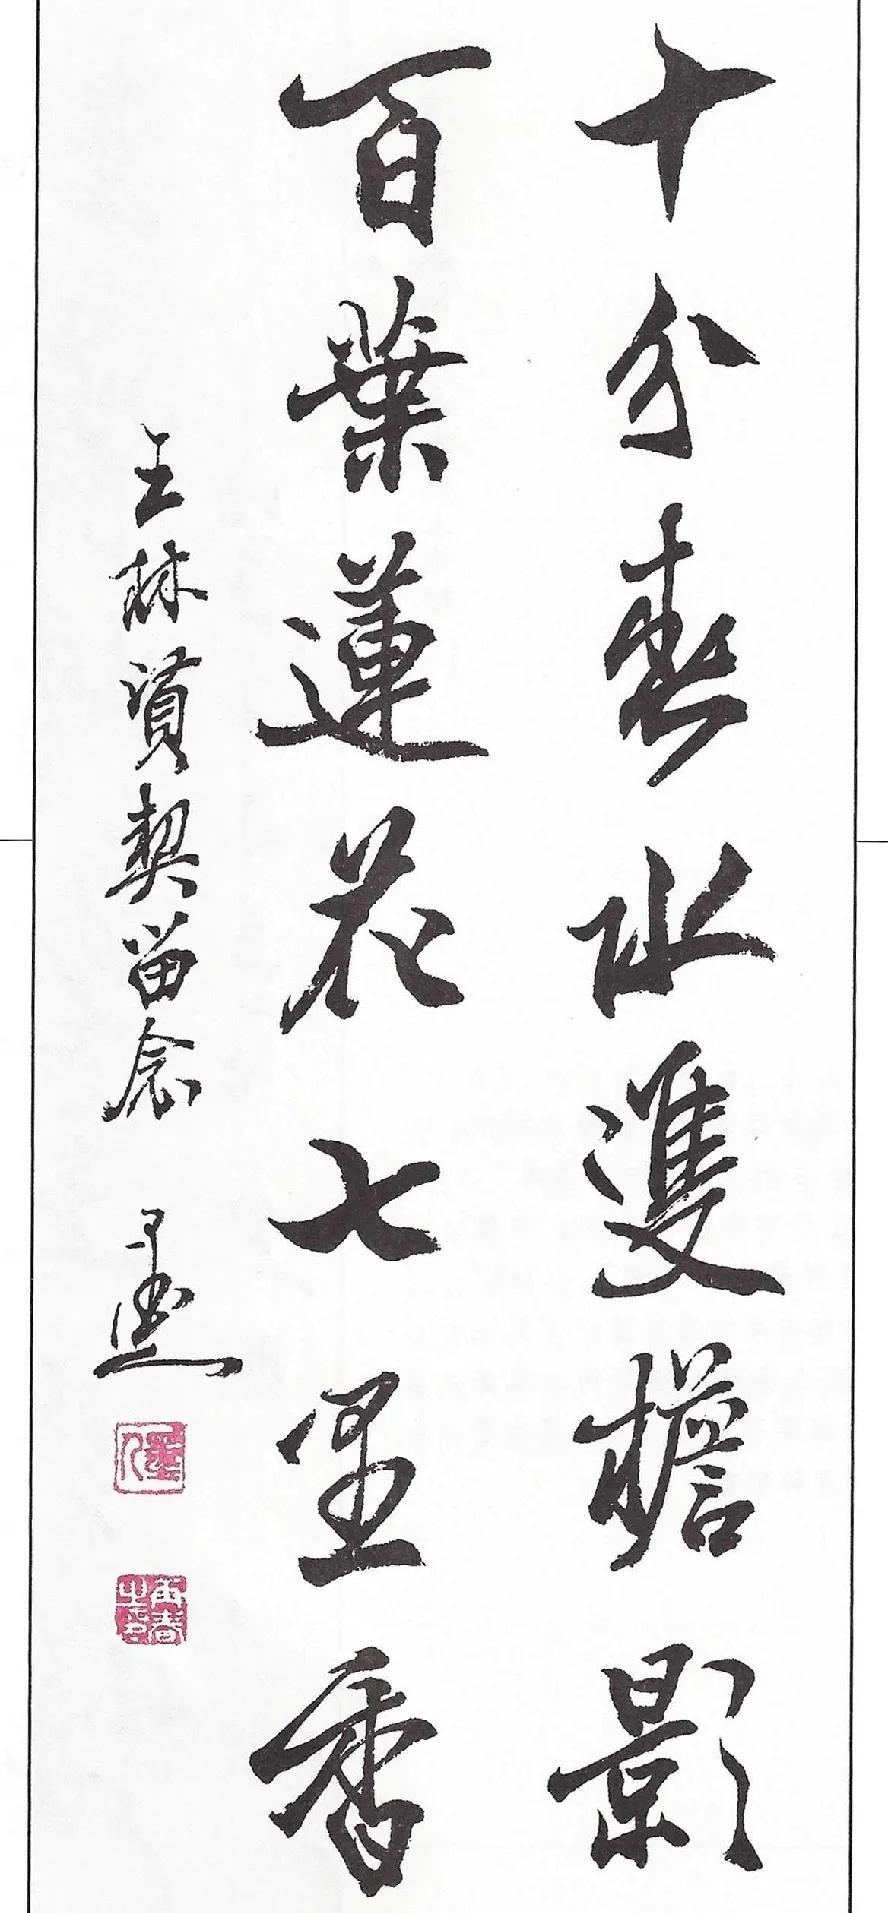 十分春水雙檐影
百葉蓮花七里香
王林賢契留念